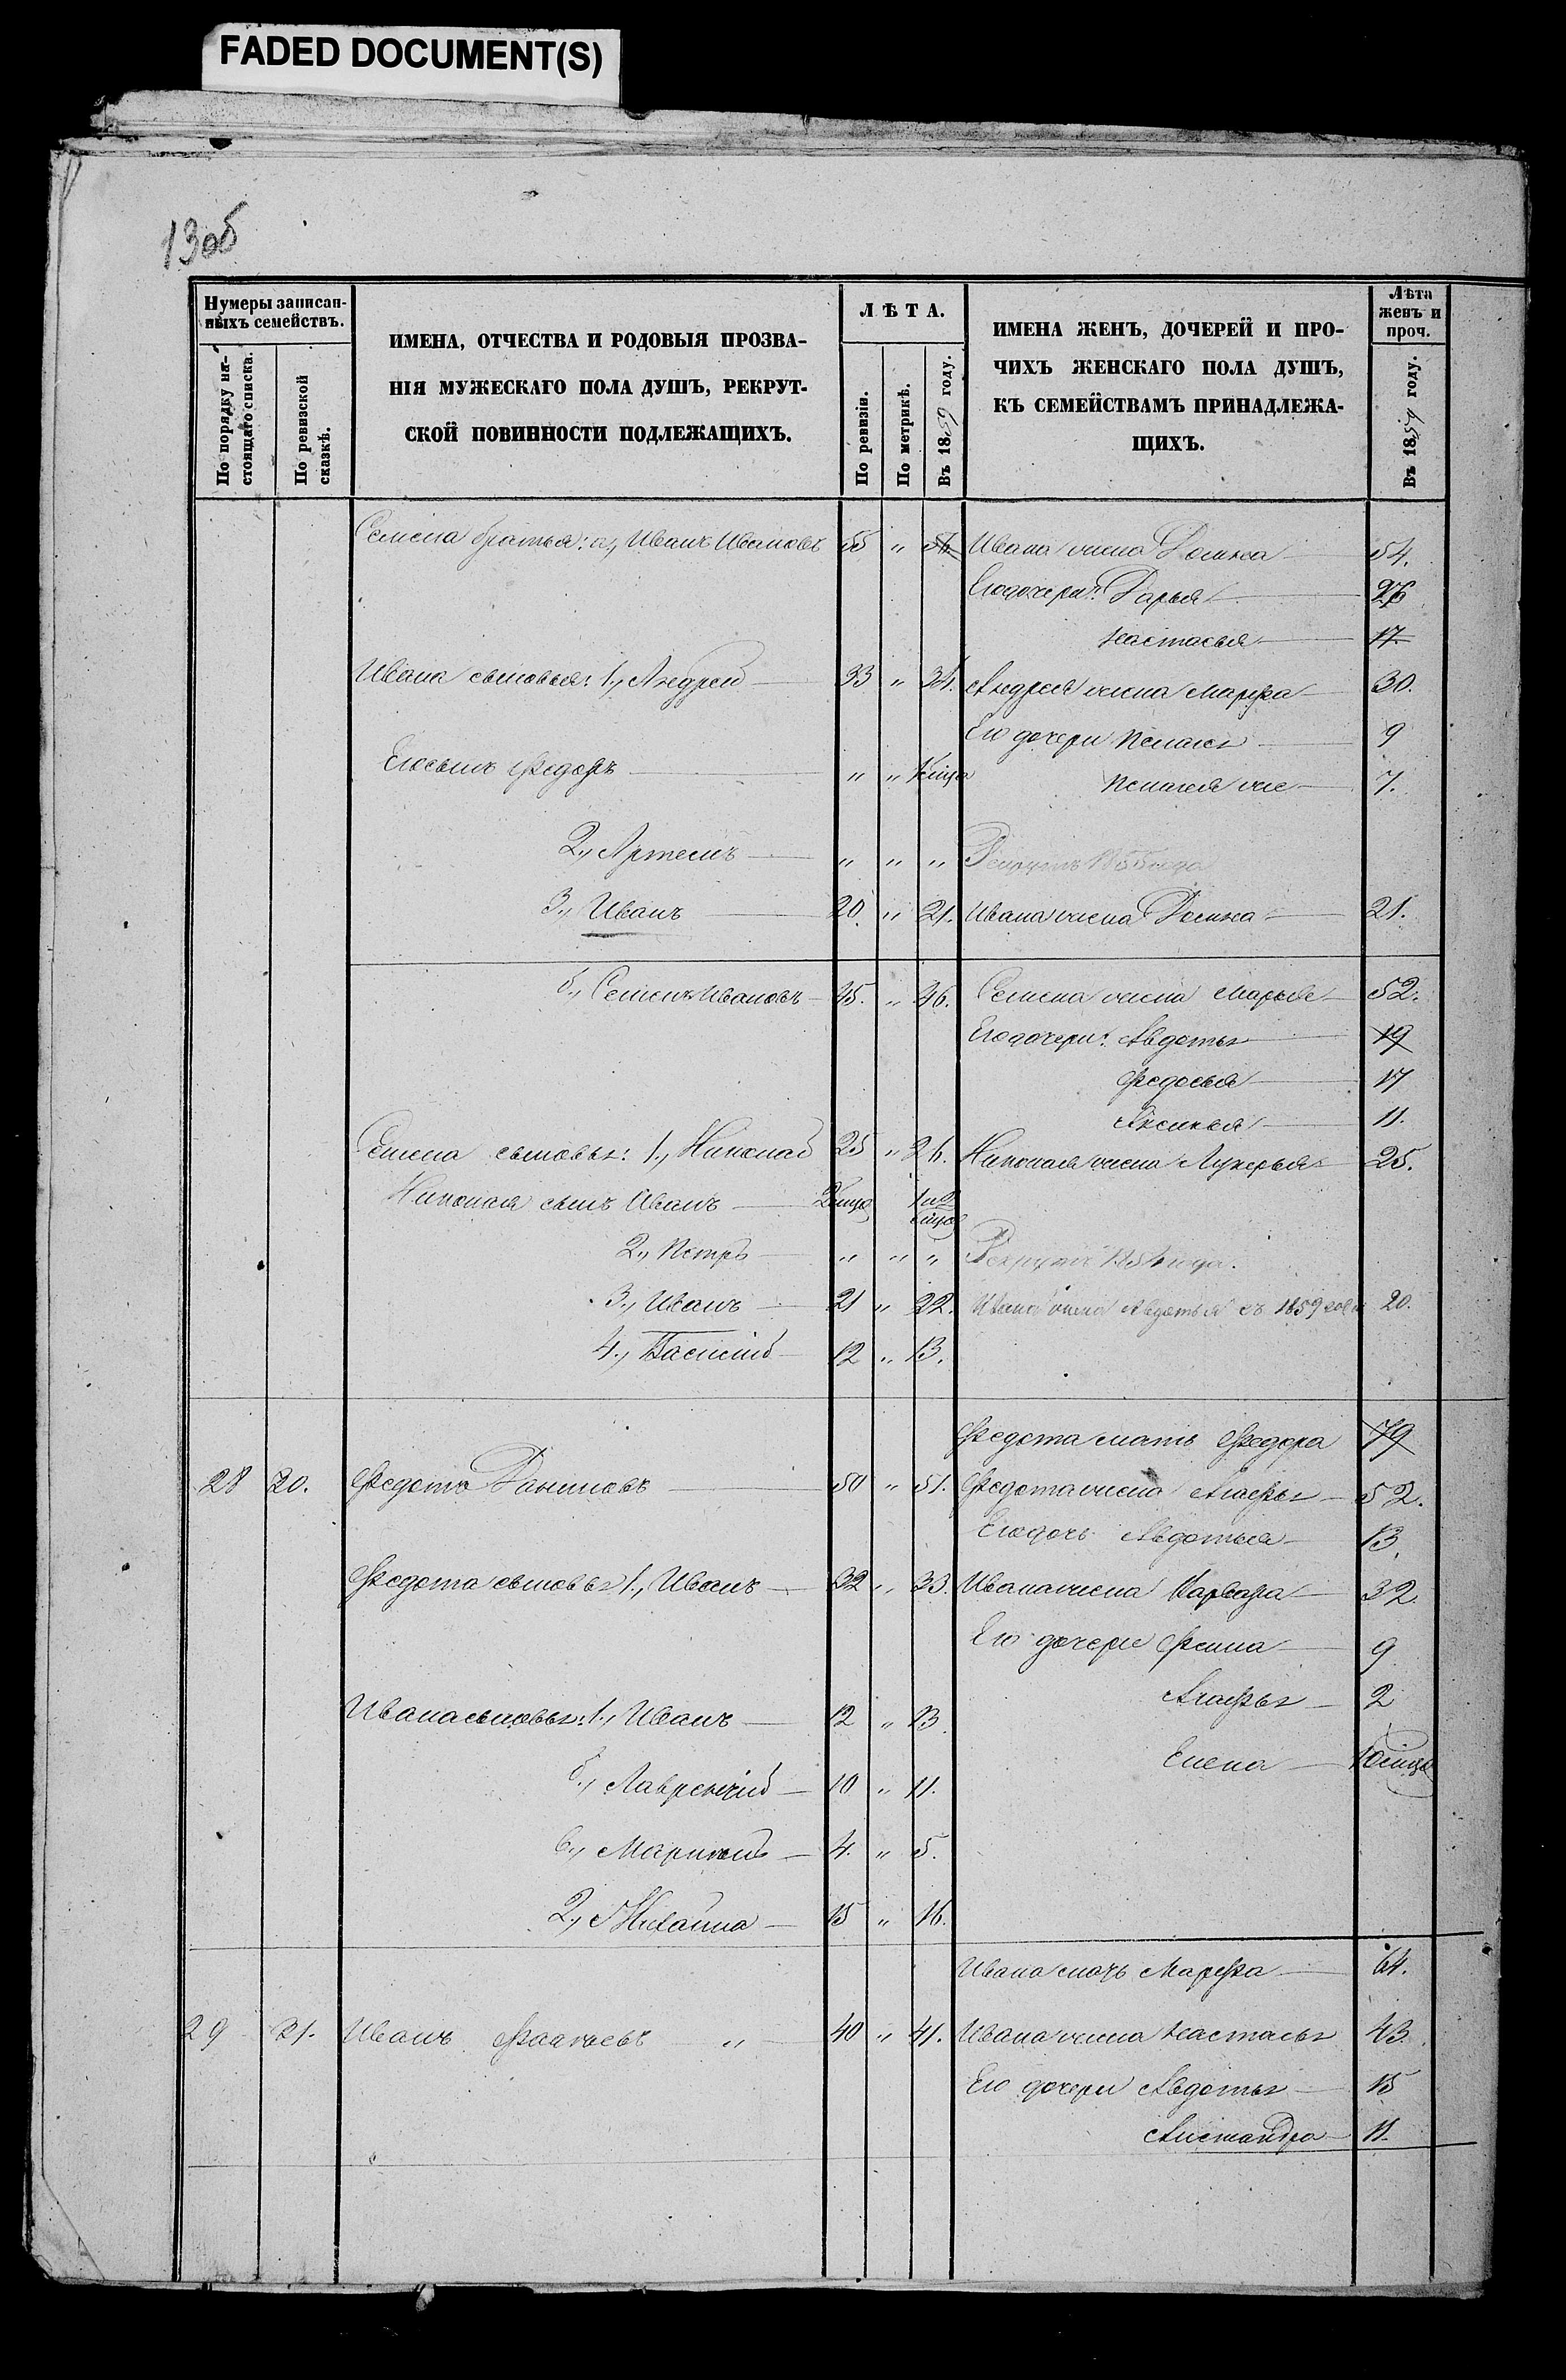 FADED DOCUMENT(S)
13об
Нумеры записан-
ныхъ семействъ.
По порядку на-
стоящаго списка.
По ревизской
сказкѣ.
ИМЕНА, ОТЧЕСТВА И РОДОВЫЯ ПРОЗВА-
НІЯ МУЖЕСКАГО ПОЛА ДУШЪ, РЕКРУТ-
СКОЙ ПОВИННОСТИ ПОДЛЕЖАЩИХЪ.
ЛѢТА.
По ревизіи.
По метрикѣ.
Въ 1859 году.
ИМЕНА ЖЕНЪ, ДОЧЕРЕЙ И ПРО-
ЧИХЪ ЖЕНСКАГО ПОЛА ДУШЪ,
КЪ СЕМЕЙСТВАМЪ ПРИНАДЛЕЖА-
ЩИХЪ.
Лѣта
женъ и
проч.
Въ 1859 году.
Семена братья: а., Иванъ Ивановъ 55 " 56 Ивана жена Домна 54.
Его дочери: Дарья 26
Настасья 17
Ивана сыновья: 1., Андрей 33 " 34. Андрея жена Марфа 30.
Его дочери Пелагея 9
Его сынъ Федоръ " "
Пелагея же 7.
2., Артемъ " " " Рекрутъ 1855 года
3., Иванъ 20. " 21. Ивана жена Домна 21.
б., Семенъ Ивановъ 45. " 46. Семена жена Марья 52.
Его дочери: Авдотья 19
Федосья 17
Аксинья 11.
Семена сыновья: 1., Николай 25 " 26. Николая жена Лукерья 25.
Николая сынъ Иванъ
2., Петръ " " " Рекрутъ 1854 года.
3., Иванъ 21 " 22. Ивана жена Авдотья съ 1859 года 20.
4., Василій 12 " 13.
Федота мать Федора 79
28 20. Федотъ Даниловъ 50 " 51. Федота жена Агафья 52.
Его дочь Авдотья 13.
Федота сыновья 1., Иванъ 32 " 33. Ивана жена Варвара 32.
Его дочери Фекла 9
Агафья 2
Ивана сыновья: 1., Иванъ 12 " 13.
Елена
б., Лаврентій 10 " 11.
в., 4. " 5.
2., Михайла 15 " 16.
Ивана мать Марфа 64.
29 21. Иванъ " 40 " 41. Ивана жена Настасья 43.
Его дочери Авдотья 15
11.